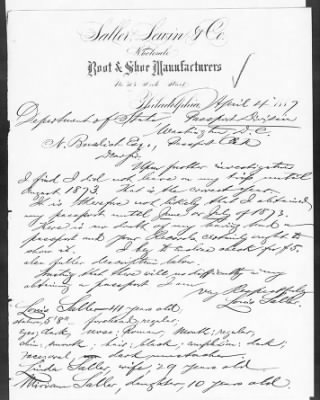 Saller, Lewin & Co.
Wholesale
Boot & Shoe Manufacturers
Philadelphia, April 4
Department of State, Passport Division
Washington, D.C.
N. Benedict Esq., Passport Clerk
Dear Sir,
Upon further investigation
I find I did not leave on my trip until
August 1873. That is the correct year.
It is therefore not likely that I obtained
my passport until June or July of 1873.
There is no doubt of my having had a
passport and your Records certainly ought to
show it. I beg to enclose check for $5.
also fuller description below.
Trusting that there will no difficulty in my
obtaining a passport I am
very Respectfully
Louis Saller.
Louis Saller 41 years old,
stature, 5' 8" forehead, regular,
eyes, dark, nose: Roman, Mouth; regular,
chin; smooth; hair; black; complexion; dark;
face; oval, dark mustache.
Linda Saller, wife, 29 years old
Miriam Saller, daughter, 10 years old